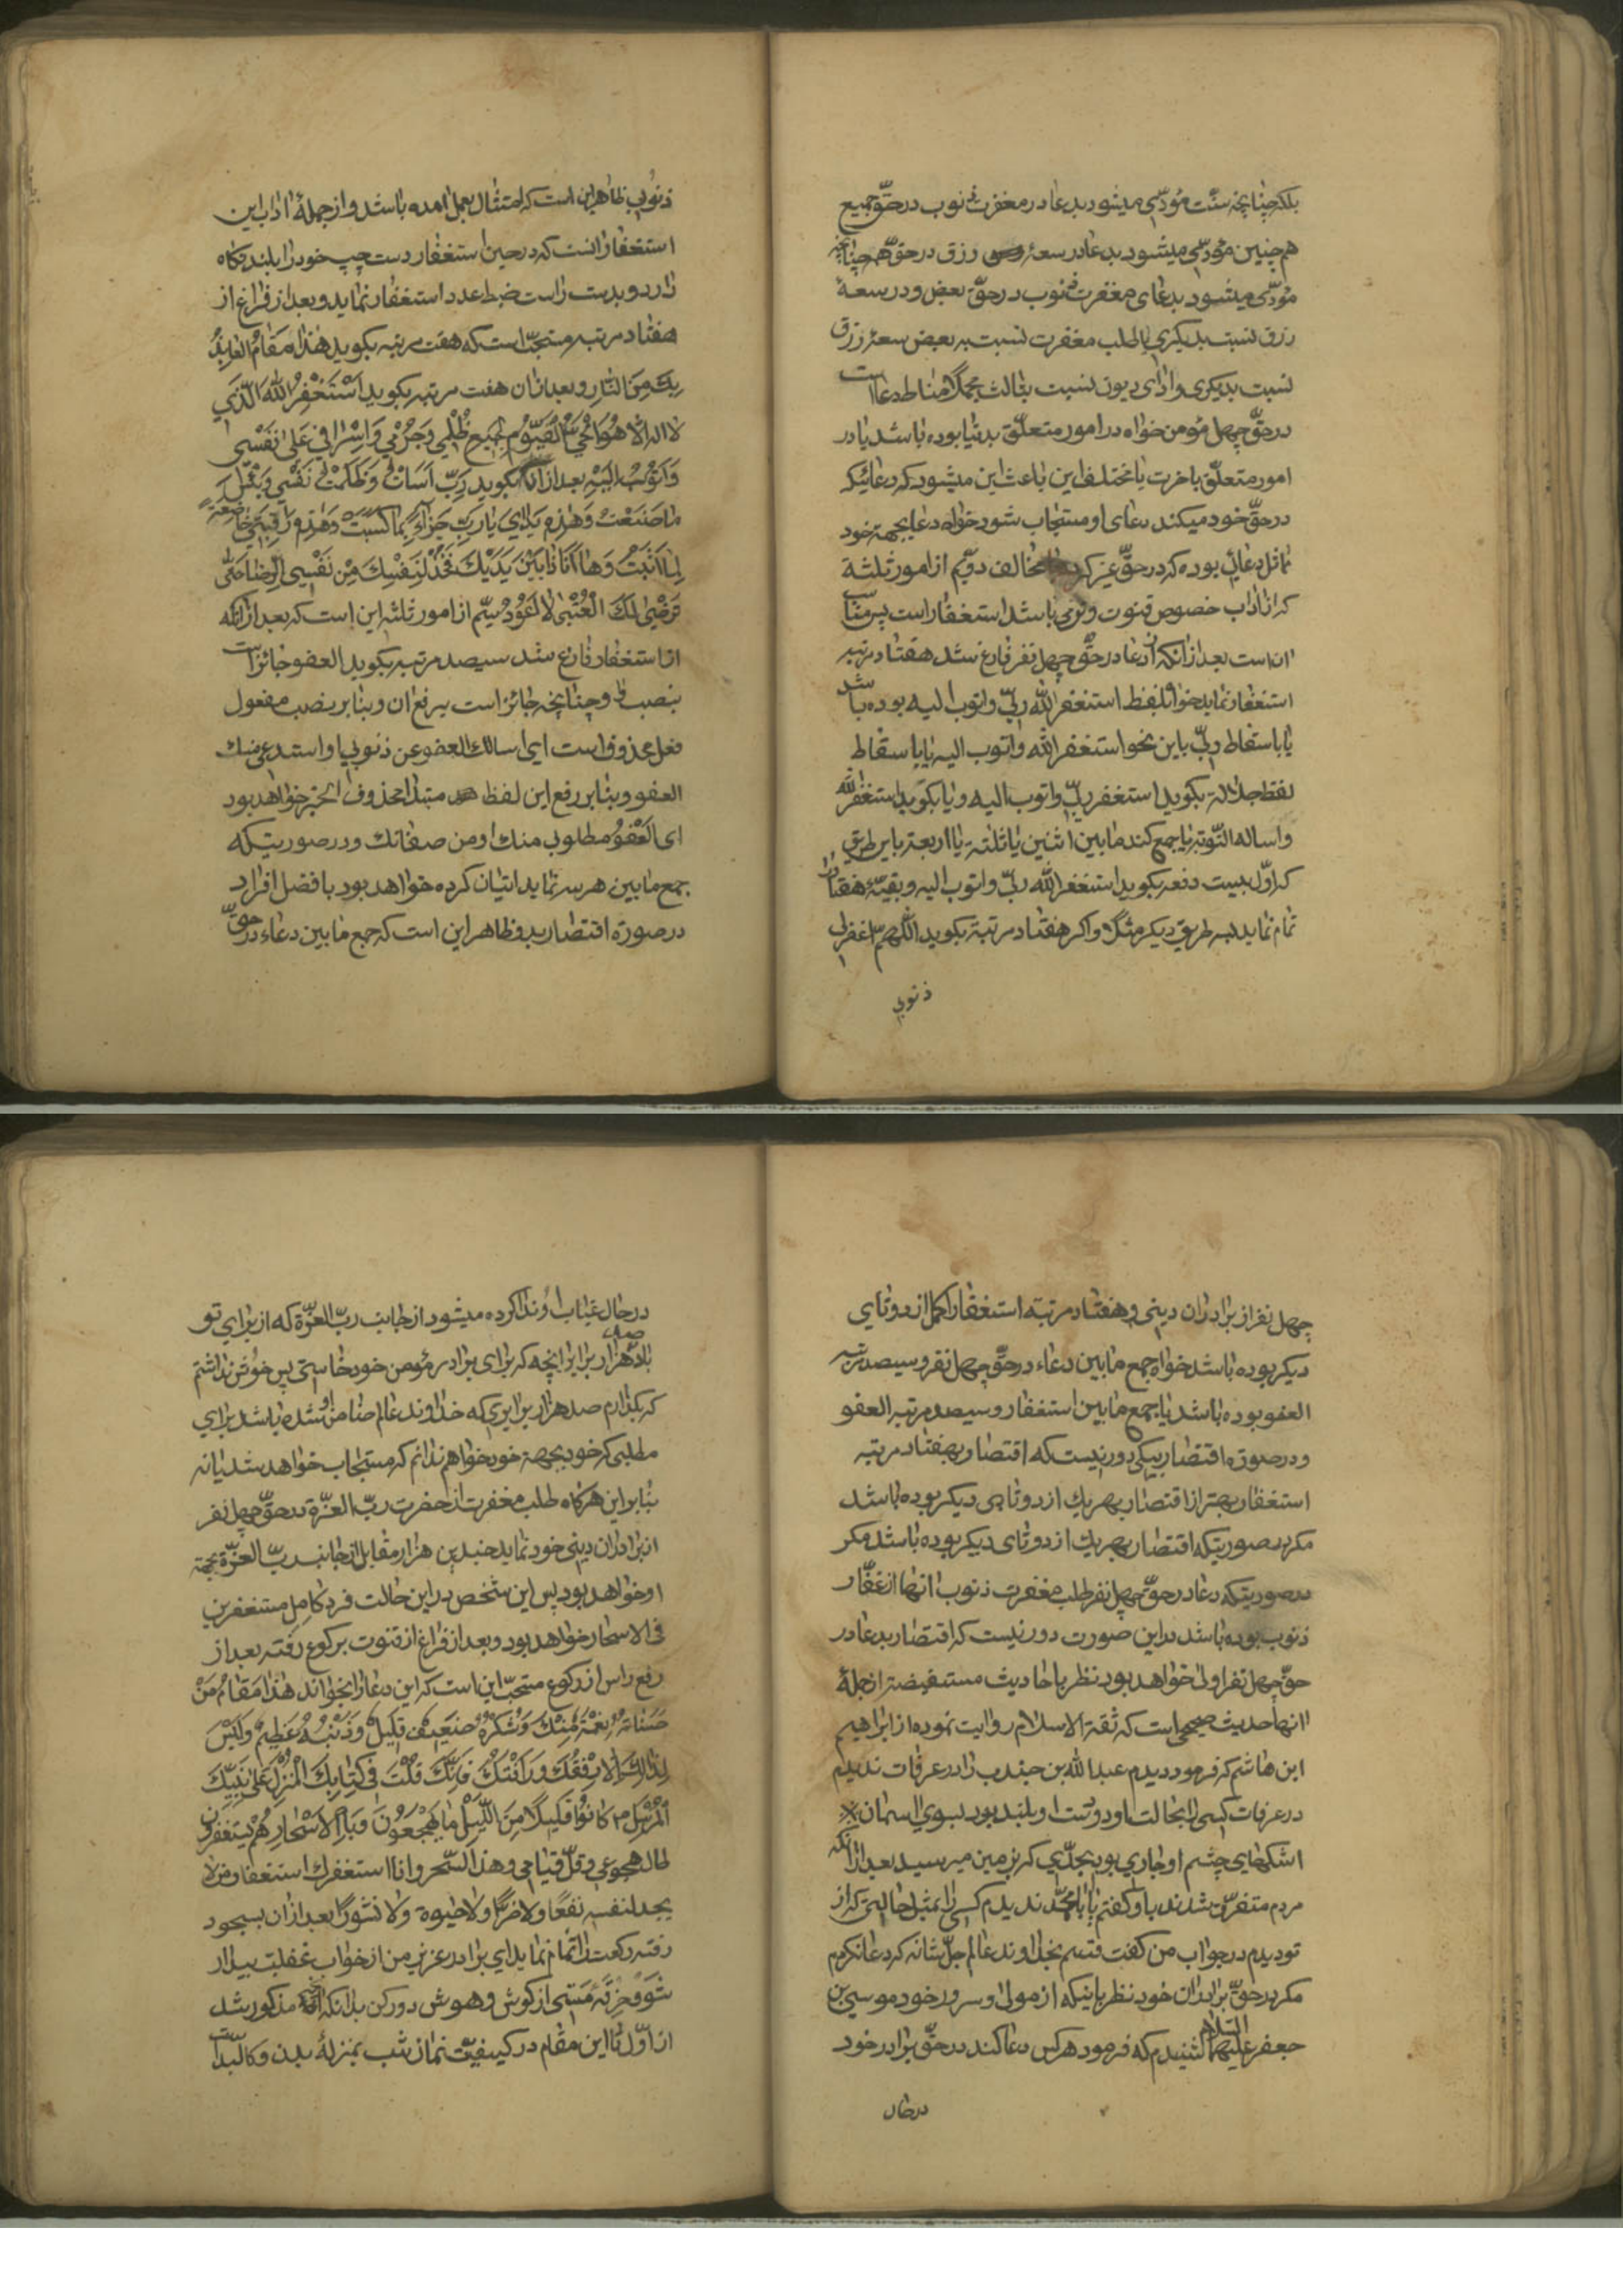 بلکه چنانچه سنّت مؤدّی میشود بدعا در مغفرت ذنوب در حقّ جمیع
هم چنین مؤدّی میشود بدعا در سعهٔ رزق در حقّ همه چنانچه
مؤدّی میشود بدعای مغفرت ذنوب در حقّ بعض و در سعهٔ
رزق نسبت بدیکری یا طلب مغفرت نسبت ببعض سعهٔ رزق
نسبت بدیکری و ادای دیون نسبت بثالث مجملا مناط دعا است
در حقّ چهل مؤمن خواه در امور متعلّق بدنیا بوده باشد یا در
امور متعلّق باخرت یا مختلف این باعث این میشود که دعائیکه
در حقّ خود میکند دعای او مستجاب شود خواه دعا بجهة خود
مماثل دعائی بوده که در حقّ غیر کرده یا مخالف دویّم از امور ثلثة
که از اداب خصوص قنوت وتر می باشد استغفار است پس مناسب
ان است بعد از انکه از دعا در حقّ چهل نفر فارغ شد هفتاد مرتبه
استغفار نماید خواه بلفظ استغفر الله ربّی و اتوب الیه بوده باشد
یا باسقاط ربّی باین نحو استغفر الله و اتوب الیه یا باسقاط
لفظ جلالة بکوید استغفر ربّی و اتوب الیه و یا بکوید استغفر الله
و اساله التّوبة یا جمع کند مابین اثنین یا ثلثة یا اربعة باین طریق
که اوّل بیست دفعه بکوید استغفر الله ربّی و اتوب الیه و بقیّهٔ هفتاد را
تمام نماید بسه طریق دیکر مثلا و اکر هفتاد مرتبة بکوید اللّهمّ اغفر لی
ذنوبی
ذنوبی ظاهر این است که امتثال بعمل امده باشد و از جملهٔ اداب این
استغفار انست که در حین استغفار دست چپ خود را بلند نکاه
دارد و بدست راست ضبط عدد استغفار نماید و بعد از فراغ از
هفتاد مرتبه مستحبّ است که هفت مرتبه بکوید هٰذا مَقَامُ الْعَائِذِ
بِكَ مِنَ النَّارِ و بعد از ان هفت مرتبه بکوید اَسْتَغْفِرُ اللهَ الَّذِي
لا اله الّا هُوَ الْحَيُّ الْقَيُّوُم لِجَميعِ ظُلْمِي وَجُرْمِي وَاِسْرافِي عَلىٰ نَفْسِي
وَاَتُوْبُ اِلَيْهِ بعد از ان بکوید رَبِّ اَسَاْتُ وَظَلَمْتُ نَفْسِي وَبِئْسَ
ما صَنَعْتُ وَهٰذِهِ يَدٰايَ يَارَبِّ جَزاءً بِمَا كَسَبَتْ وَهٰذِهِ رَقَبَتِي خَاضِعَةً
لِمَا اَتَيْتُ وَهَا اَنَا ذَا بَيْنَ يَدَيْكَ فَخُذْ لِنَفْسِكَ مِنْ نَفْسِي الرِّضَا حَتّٰى
تَرْضٰى لَكَ الْعُتْبىٰ لا اَعُوْدُ سیّم از امور ثلثه این است که بعد از انکه
از استغفار فارغ شد سیصد مرتبه بکوید العفو جائز است
بنصب و او چنانچه جائز است برفع ان و بنا بر نصب مفعول
فعل محذوف است ای اسالك العفو عن ذنوبی او استدعی منك
العفو و بنا بر رفع این لفظ مبتدا محذوف الخبر خواهد بود
ای الْعَفْوُ مطلوب منك او من صفاتك و در صورتیکه
جمع مابین هر سه نماید اتیان کرده خواهد بود بافضل افراد
در صورة اقتصار بدو ظاهر این است که جمع مابین دعاء در حقّ
چهل نفر از برادران دینی و هفتاد مرتبة استغفار اکمل از دوتای
دیکر بوده باشد خواه جمع مابین دعاء در حقّ چهل نفر و سیصد مرتبه
العفو بوده باشد یا جمع مابین استغفار و سیصد مرتبه العفو
و در صورة اقتصار بیکی دور نیست که اقتصار بهفتاد مرتبه
استغفار بهتر از اقتصار بهر یك از دوتای دیکر بوده باشد
مکر در صورتیکه اقتصار بهر یك از دوتای دیکر بوده باشد مکر
در صورتیکه دعا در حقّ چهل نفر طلب مغفرت ذنوب انها از غفّار
ذنوب بوده باشد در این صورت دور نیست که اقتصار بدعا در
حقّ چهل نفر اولی خواهد بود نظر باحادیث مستفیضه از جملهٔ
انها حدیث صحیحی است که ثقة الاسلام روایت نموده از ابراهیم
ابن هاشم که فرمود دیدم عبد الله بن جندب را در عرفات ندیدم
در عرفات کسی را بحالت او دو دست او بلند بود بسوی اسمان
اشکهای چشم او جاری بود بحدّی که بزمین میرسید بعد از انکه
مردم متفرّق شدند باو کفتم یا ابا محمّد ندیدم کسی را بمثل حالتی که از
تو دیدم در جواب من کفت قسم بخداوند عالم جلّ شانه که دعا نکردم
مکر در حقّ برادران خود نظر باینکه از مولی و سرور خود موسی بن
جعفر علیهما السّلام شنیدم که فرمود هر کس دعا کند در حقّ برادر خود
در حال
در حال غیاب او ندا کرده میشود از جانب ربّ العزّة که از برای تو
باد صد هزار برابر انچه که برای برادر مؤمن خود خواستی پس خوش نداشتم
که بکذارم صد هزار برابری که خداوند عالم ضامن او شده باشد برای
مطلبی که خود بجهة خود خواهم ندانم که مستجاب خواهد شد یا نه
بنا بر این هر کاه طلب مغفرت از حضرت ربّ العزّة در حقّ چهل نفر
از برادران دینی خود نماید چندین هزار مقابل از جانب ربّ العزّة بجهة
او خواهد بود پس این شخص در این حالت فرد کامل مستغفرین
فی الاسحار خواهد بود و بعد از فراغ از قنوت برکوع رفته بعد از
رفع راس از رکوع مستحبّ این است که این دعا را بخواند هٰذا مَقَامُ مَنْ
حَسَناتُهُ نِعْمَةٌ مِنْكَ وَشُكْرُهُ ضَعِيفٌ قَلِيلٌ وَذَنْبُهُ عَظِيمٌ وَلَيْسَ
لِذٰلِكَ اِلّا رِفْقُكَ وَرَاْفَتُكَ فَاِنَّكَ قُلْتَ فِي كِتَابِكَ الْمُنْزَلِ عَلىٰ نَبِيِّكَ
الْمُرْسَلِ م كَانُوْا قَلِيلًا مِنَ اللَّيْلِ مَا يَهْجَعُوْنَ وَبِالْاَسْحَارِ هُمْ يَسْتَغْفِرُوْنَ
طال هجوعی و قلّ قیامی و هذا السّحر و انا استغفرك استغفار من لا
یجد لنفسه نفعًا و لا ضرًّا و لا حیوة و لا نشورًا بعد از ان بسجود
رفته رکعت را تمام نماید ای برادر عزیز من از خواب غفلت بیدار
شو و خرقهٔ مستی از کوش و هوش دور کن بدانکه انچه مذکور شد
از اوّل تا این مقام در کیفیّت نماز شب بمنزلهٔ بدن و کالبد است